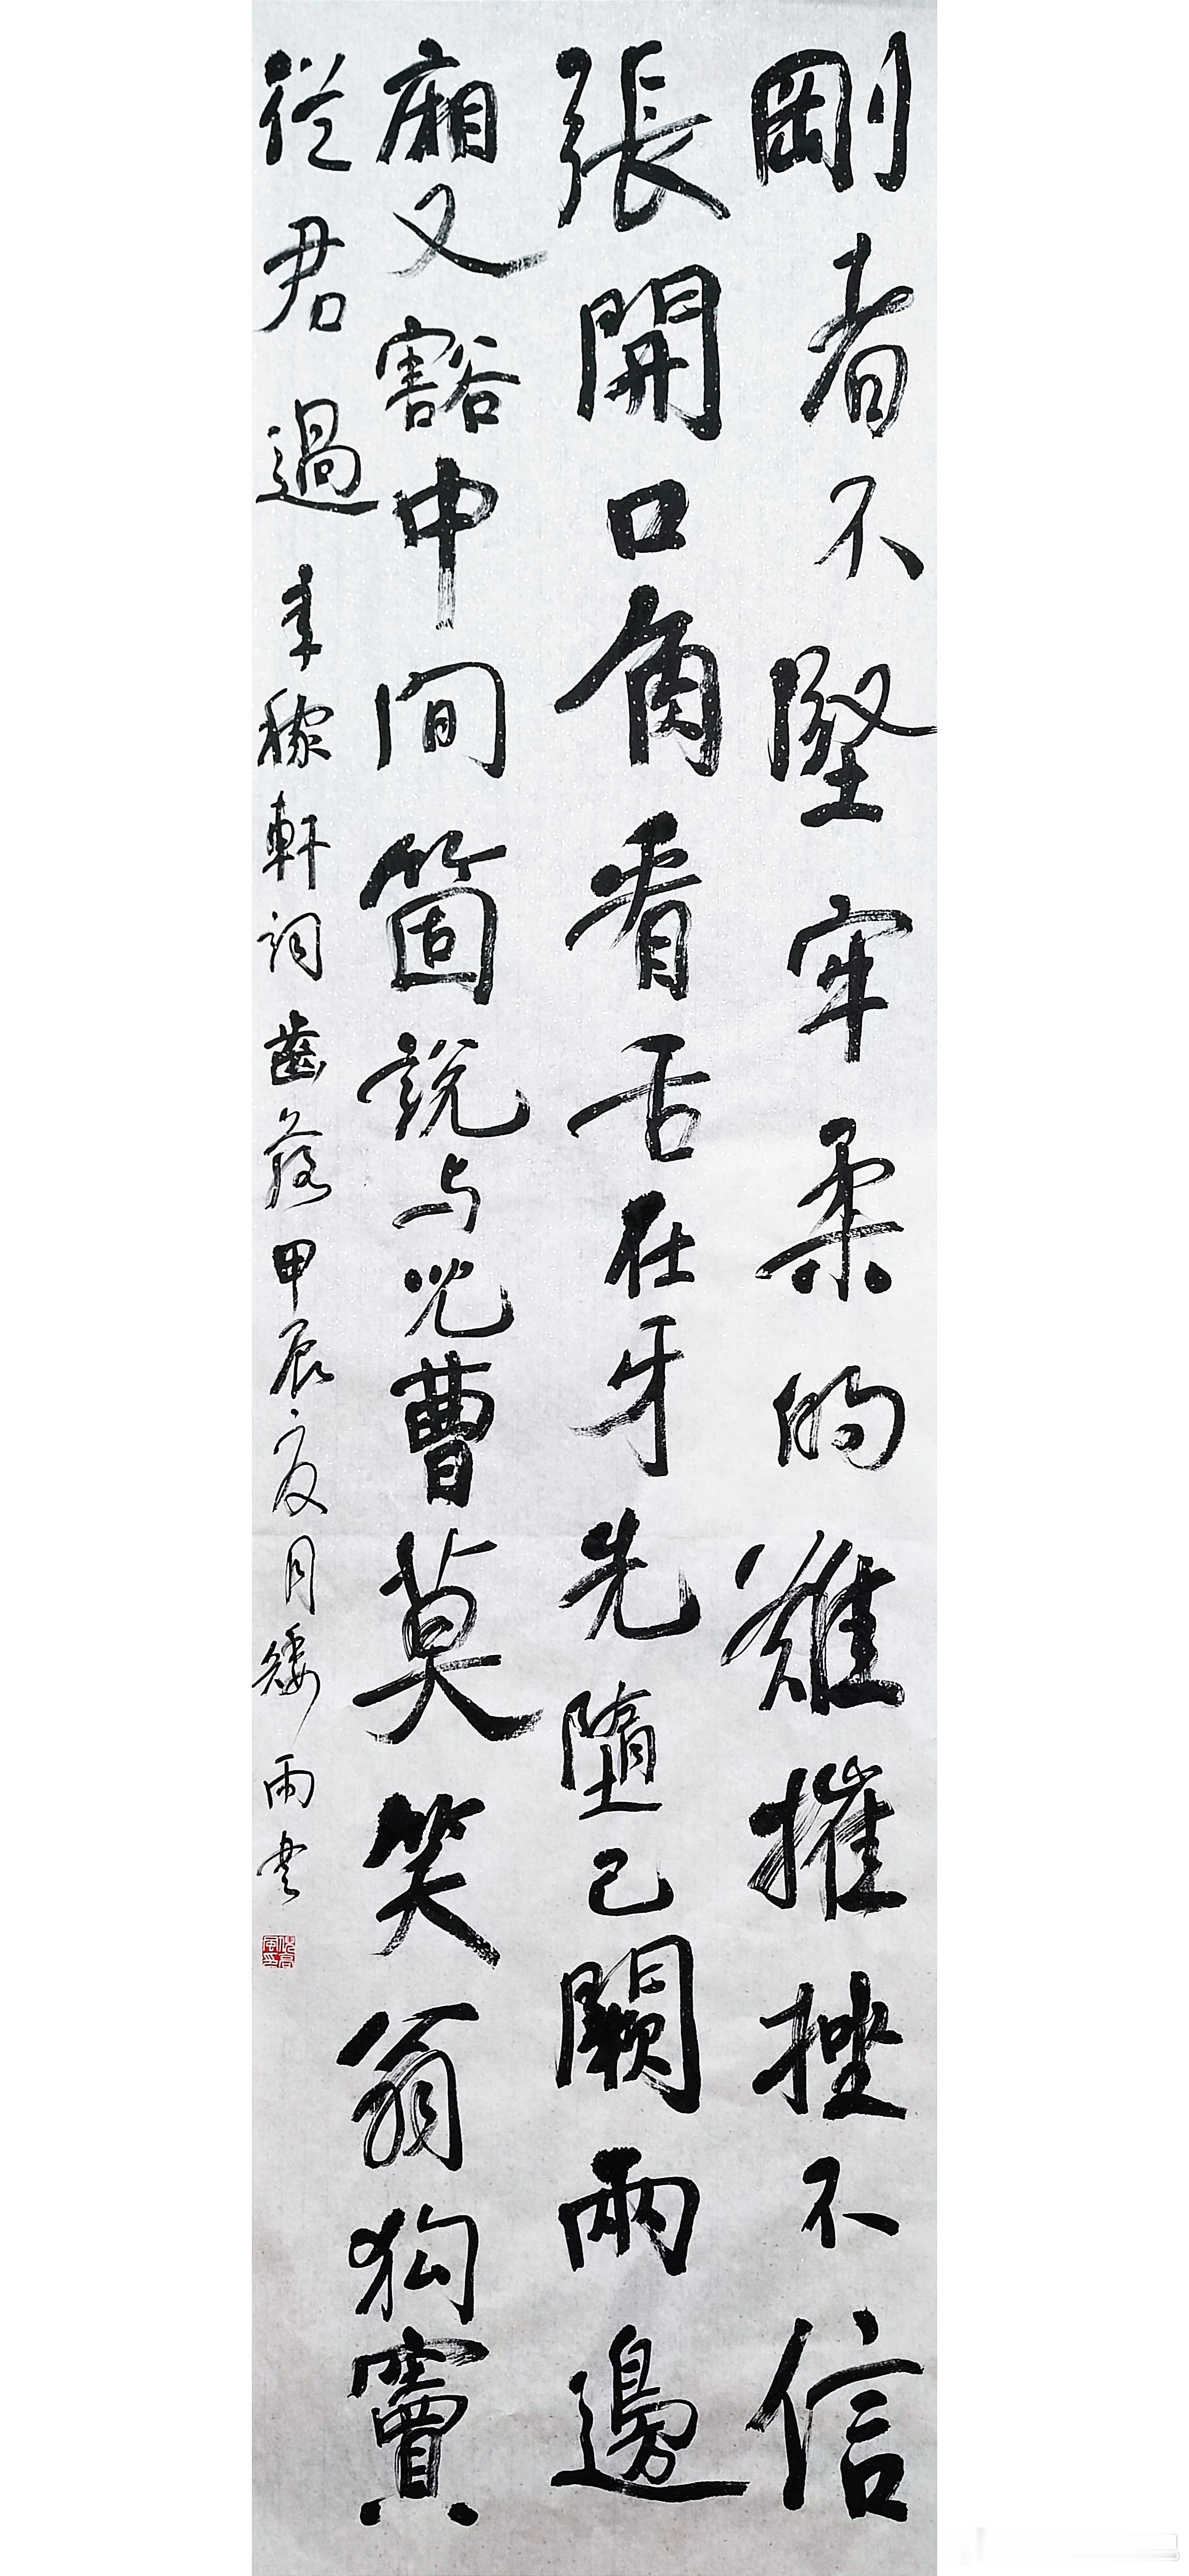 剛者不堅牢柔的難摧挫不信
張開口角看舌在牙先墮已闕兩邊
廂又豁中間箇說与兒曹莫笑翁狗竇
從君過 辛稼軒詞齒落甲辰夏月矮雨書